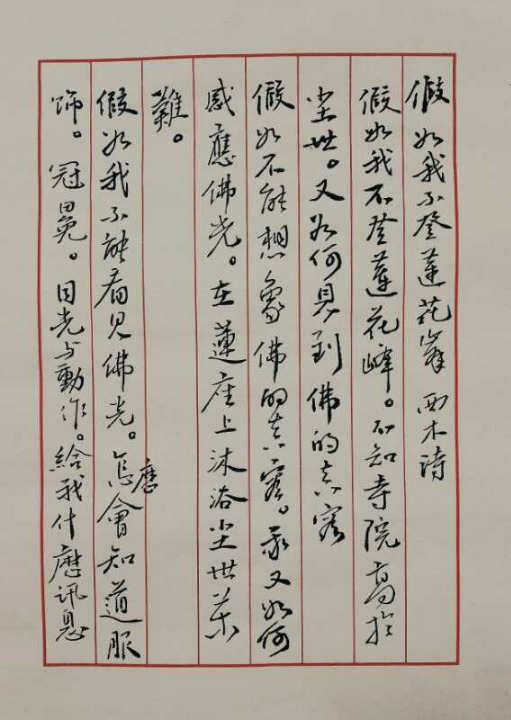 假如我不登蓮花峯 西木詩
假如我不登蓮花峰。不知寺院高於
尘世。又如何見到佛的真容
假如不能想象佛的真容。我又如何
感應佛光。在蓮座上沐浴尘世苦
難。
假如我不能看見佛光。怎麽會知道服
飾。冠冕。目光与動作。給我什麽訊息